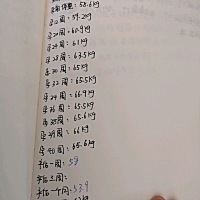 体重：58.6kg
孕12周：59.2kg
孕20周：60.9kg
孕24周：61kg
孕28周：63.5kg
孕30周：65kg
孕32周：65.5kg
孕34周：66.9kg
孕36周：65.5kg
孕38周：65.6kg
孕39周：66kg
孕40周：65.6kg
产后一周：59
产后三周：
产后一个月：53.9